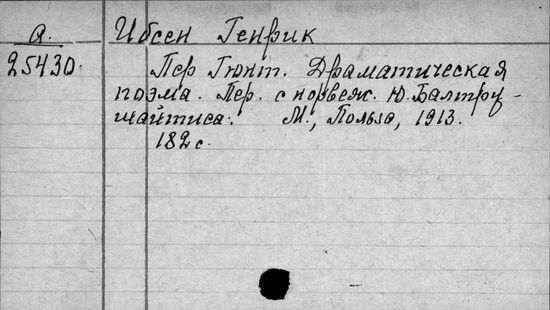 А. Ибсен Генрик
25430. Пер Гюнт. Драматическая
поэма. Пер. с норвеж. Ю. Балтру-
шайтиса. М., Польза, 1913.
182 с.